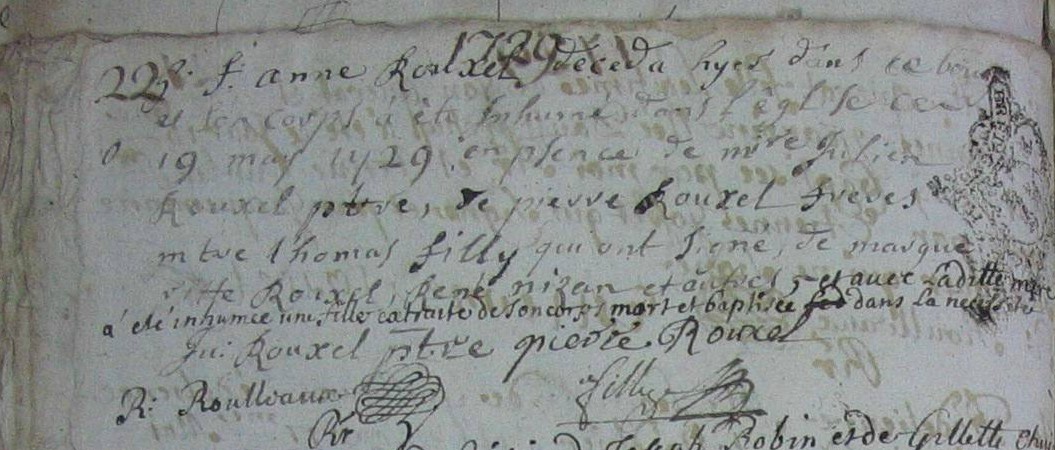 1729
22 S. f. anne Rouxel deceda hyer dans ce bour
et son corps a été Inhumé dans l'églisse ce
19 may 1729 en psence de mtre Julien
Rouxel ptre, de pierre Rouxel freres
mtre thomas filly qui ont signé, de marque
Rouxel, René nizan et autres, et avec laditte mere
a été inhumée une fille extraite de son corps mort et baptisée dans la necessité
Ju: Rouxel ptre pierre Rouxel
R: Roulleaux filly
Rr
Joseph Robin et de Gillette